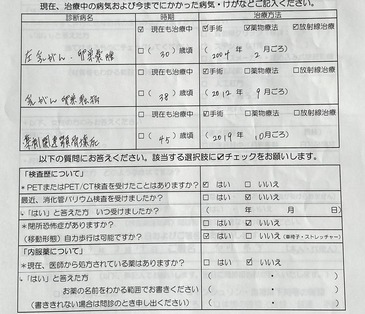 現在、治療中の病気および今までにかかった病気・けがなどご記入ください。
診断病名 時期 治療方法
☑ 現在も治療中 ☑手術 ☑薬物療法 ☑放射線治療
左乳がん、卵巣 □( 30 )歳頃 ( 2004 年 2 月ごろ)
□ 現在も治療中 ☑手術 □薬物療法 □放射線治療
乳がん 卵巣 □( 38 )歳頃 ( 2012 年 9 月ごろ)
□ 現在も治療中 ☑手術 □薬物療法 □放射線治療
薬剤関連 □( 45 )歳頃 ( 2019 年 10 月ごろ)
以下の質問にお答えください。該当する選択肢に☑チェックをお願いします。
「検査歴について」
*PETまたはPET/CT検査を受けたことはありますか? ☑ はい □ いいえ
最近、消化管バリウム検査を受けましたか? □ はい ☑ いいえ
↳「はい」と答えた方 いつ受けましたか? ( 年 月 日)
*閉所恐怖症がありますか? □ はい ☑ いいえ
(移動形態)自力歩行は可能ですか? ☑ はい □ いいえ(車椅子・ストレッチャー)
「内服薬について」
*現在、医師から処方されている薬はありますか? □ はい ☑ いいえ
↳「はい」と答えた方
お薬の名前をわかる範囲でお書きください
(書ききれない場合は問診のとき申し出ください)